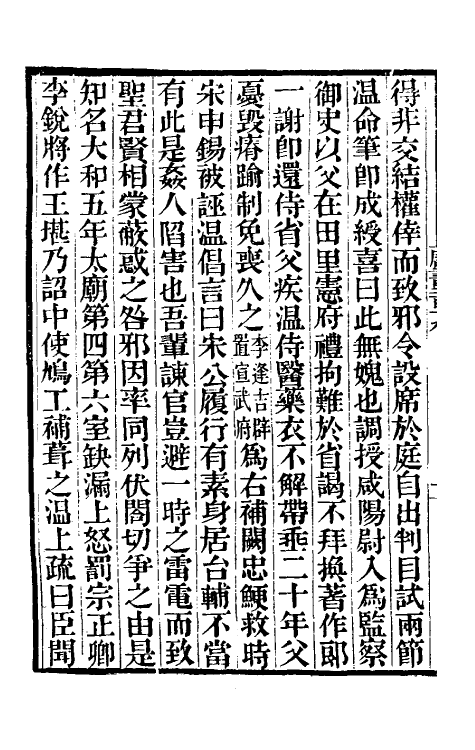 得非交結權倖而致邪令設席於庭自出判目試兩節
温命筆即成綬喜曰此無媿也調授咸陽尉入為監察
御史以父在田里憲府禮拘難於省謁不拜換著作郎
一謝即還侍省父疾温侍醫藥衣不解帶垂二十年父
憂毀瘠踰制免喪久之李逢吉辟置宣武府為右補闕忠鯁救時
宋申錫被誣温倡言曰宋公履行有素身居台輔不當
有此是姦人陷害也吾輩諫官豈避一時之雷電而致
聖君賢相蒙蔽惑之咎邪因率同列伏閤切爭之由是
知名大和五年太廟第四第六室缺漏上怒罰宗正卿
李銳將作王堪乃詔中使鳩工補葺之温上疏曰臣聞